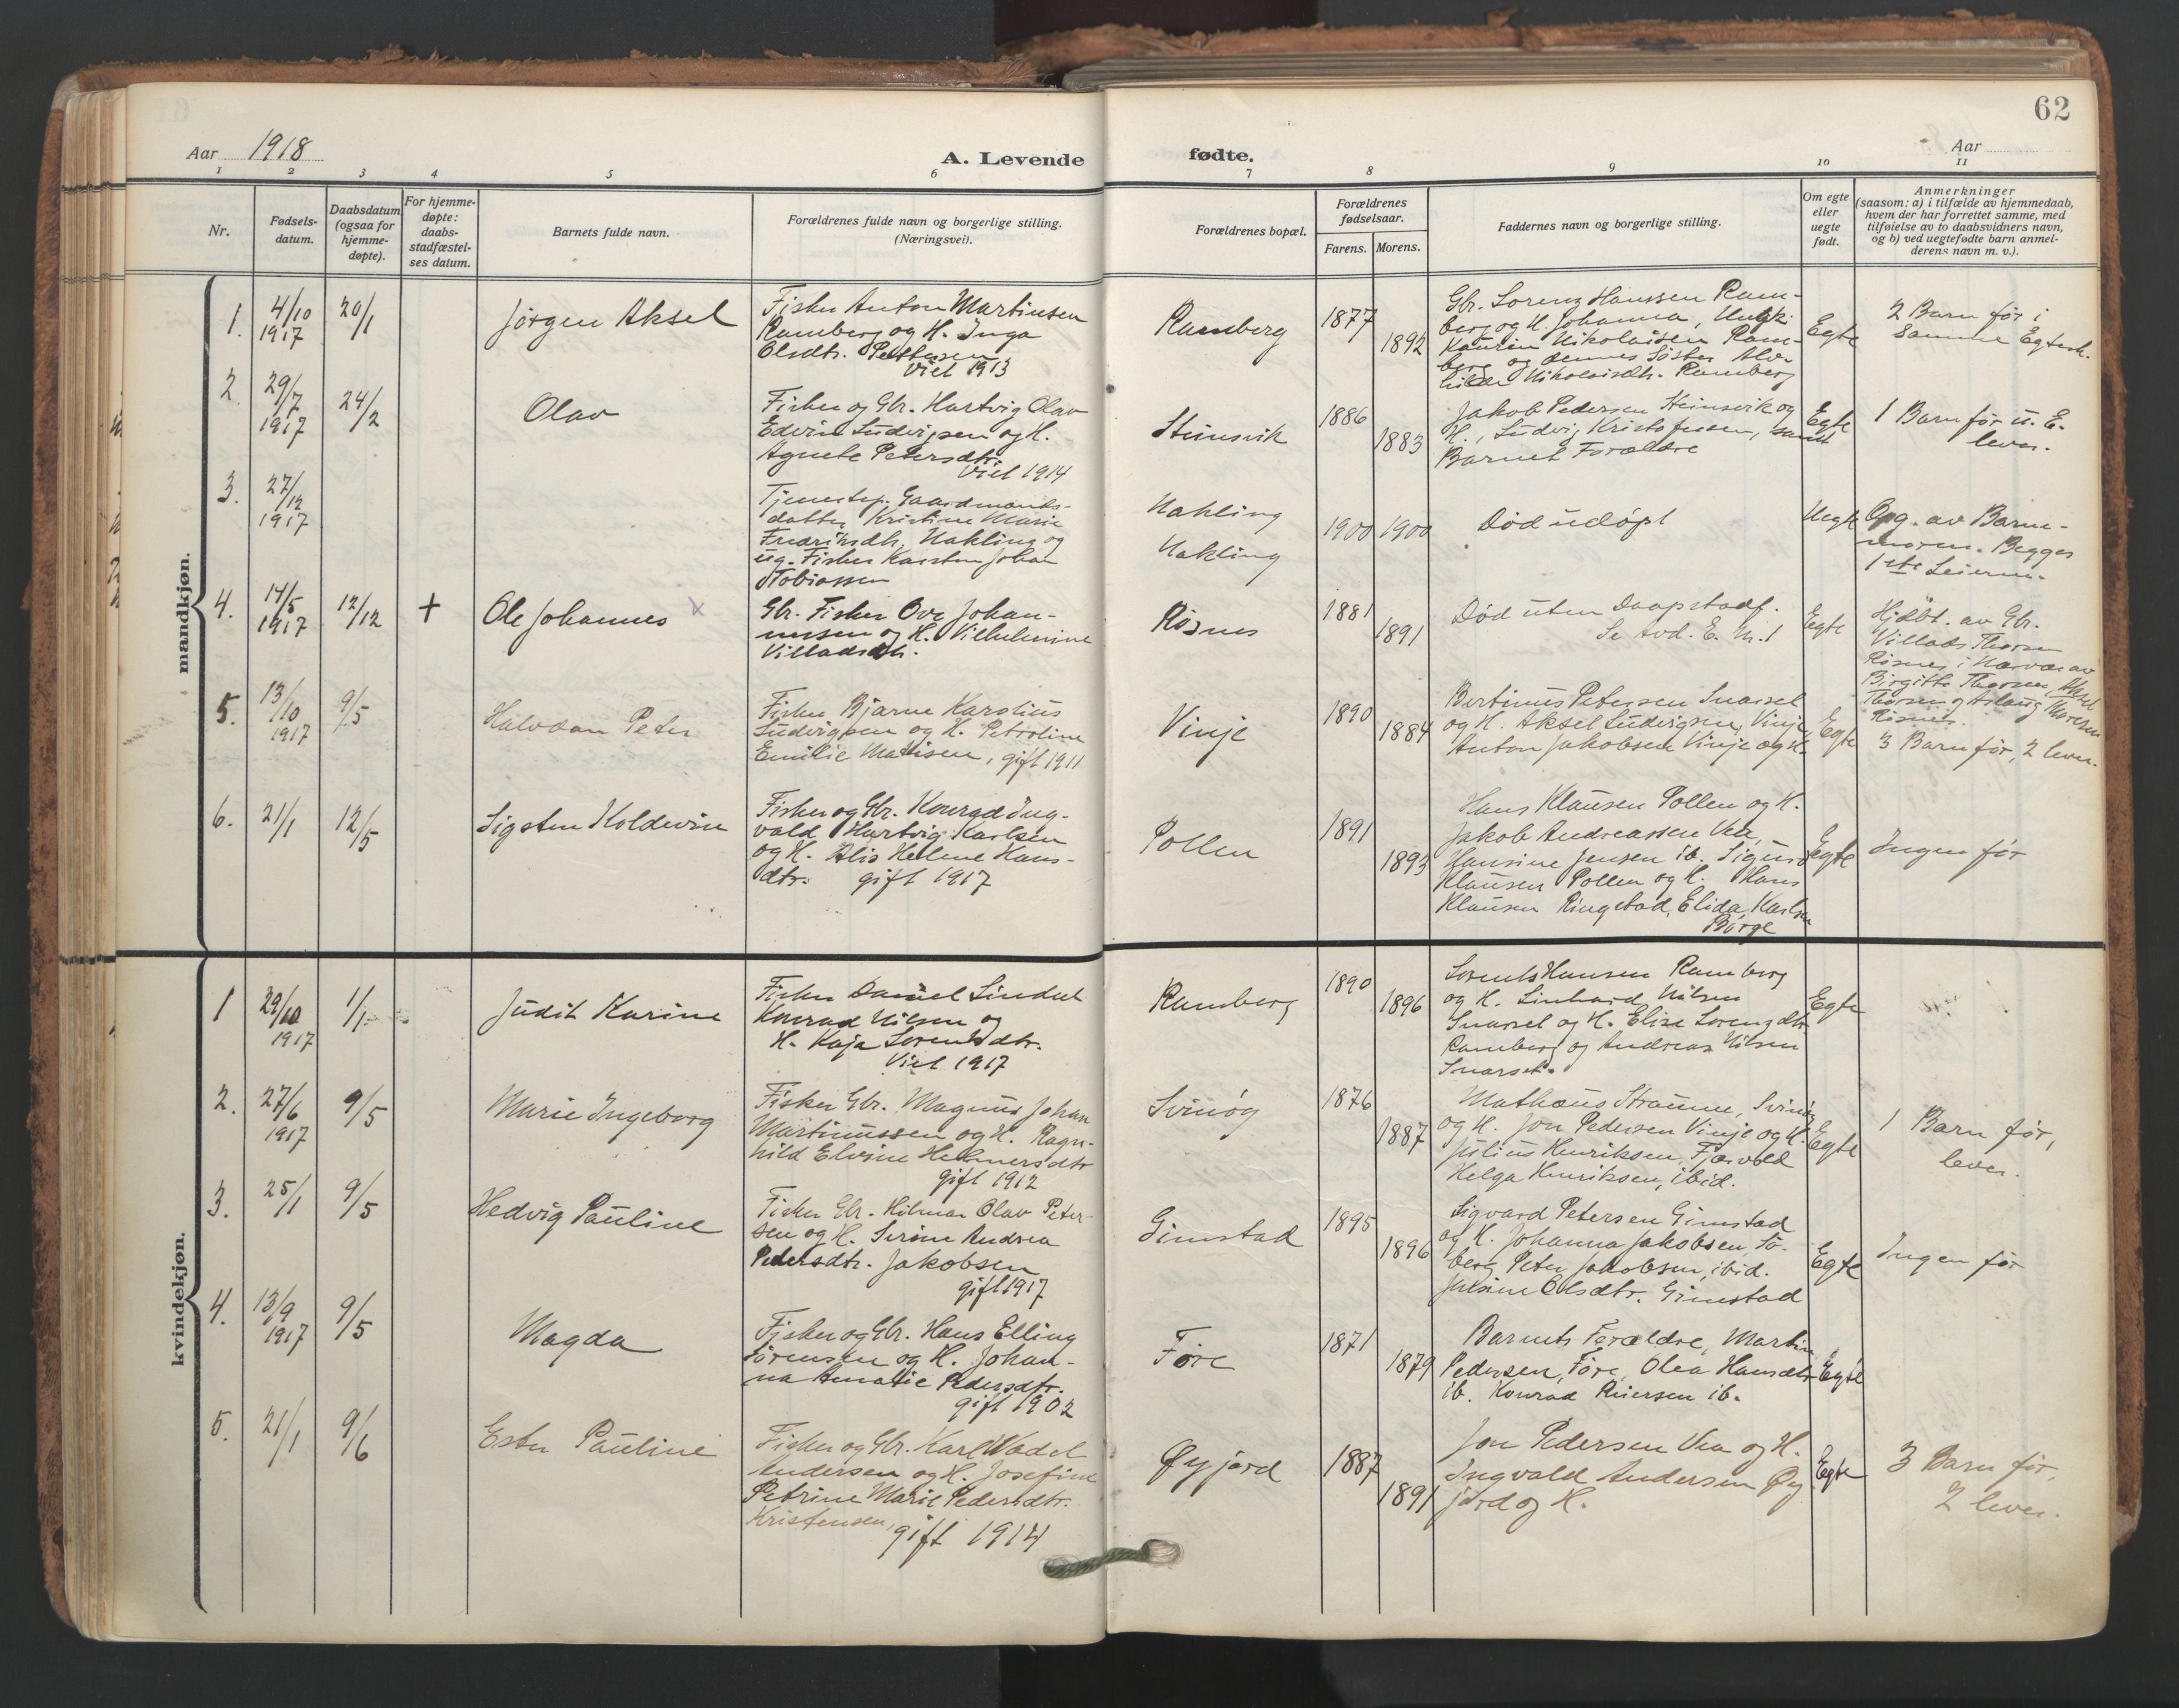 62
Aar 1918
A. Levende
fødte.
Aar
1 2 3 4 5 6 7 8 9 10 11
Nr.
Fødsels-
datum.
Daabsdatum
(ogsaa for
hjemme-
døpte).
For hjemme-
døpte:
daabs-
stadfæstel-
ses datum.
Barnets fulde navn.
Forældrenes fulde navn og borgerlige stilling.
(Næringsvei).
Forældrenes bopæl.
Forældrenes
fødselsaar.
Farens. Morens.
Faddernes navn og borgerlige stilling.
Om egte
eller
uegte
født.
Anmerkninger
(saasom: a) i tilfælde av hjemmedaab,
hvem der har forrettet samme, med
tilføielse av to daabsvidners navn,
og b) ved uegtefødte barn anmel-
derens navn m. v.).
mandkjøn.
1.
4/10
1917
20/1
Jørgen Aksel
Fisker Anton Martinsen
Ramberg og H. Inga
Olsdtr. Pettersen
Viet 1913
Ramberg
1877
1892
Gbr. Lorenz Hanssen Ram-
berg og H. Johanna, Ungk.
Nikolaisen Ram-
berg og dennes Søster
Nikolaisdtr. Ramberg
Egte
2 Barn før i
samme Egtesk.
2.
29/7
1917
24/2
Olav
Fisker og Gbr. Hartvig Olav
Edvin Ludvigsen og H.
Agnete Petersdtr.
Viet 1914
Steinsvik
1886
1883
Jakob Pedersen Steinsvik og
H., Ludvig Kristofersen, samt
Barnets Forældre
Egte
1 Barn før u. E.
lever.
3.
27/12
1917
Tjenestep. Gaardmands-
datter Kristine Marie
Fredriksdtr. Nakling og
ug. Fisker Karsten Johan
Tobiassen
Nakling
Nakling
1900 1900
Død udøpt
Uegte
Opg. av Barne-
moren. Begges
1ste Leierm.
4.
14/5
1917
12/12
+
Ole Johannes
Gbr. Fisker Ove Johan-
nessen og H. Vilhelmine
Villadsdtr.
Røsnes
1881
1891
Død uten Daapstadf.
Se Avd. E. N. 1
Egte
Hjdbt. av Gbr.
Villads Thorsen
Røsnes i Nærvær av
Birgitte Thorsen, Aksel
Thorsen og Aslaug Thorsen
Røsnes.
5.
13/10
1917
9/5
Halvdan Peter
Fisker Bjarne Karolius
Ludvigsen og H. Petroline
Emilie Matisen, gift 1911
Vinje
1890
1884
Bertinus Petersen Snarset
og H. Aksel Ludvigsen, Vinje,
Anton Jakobsen Vinje og H.
Egte
3 Barn før, 2 lever.
6.
21/1
12/5
Sigsten Koldevin
Fisker og Gbr. Konrad Ing-
vald Hartvig Karlsen
og H. Alis Helene Hans-
dtr. gift 1917
Pollen
1891
1893
Hans Klausen Pollen og H.
Jakob Andreassen Vea,
Hansine Jensen ib. Sigurd
Klausen Pollen og H. Hans
Klausen Ringstad, Elida Karlsen
Børge
Egte
Ingen før
kvindekjøn.
1
29/10
1917
1/1
Judit Karine
Fisker Daniel Lindal
Konrad Nilsen og
H. Kaja Lorentsdtr.
Viet 1917
Ramberg
1890
1896
Lorents Hansen Ramberg
og H. Linhard Nilsen
Snarset og H. Elise Lorenzdtr.
Ramberg og Andreas Nilsen
Snarset.
Egte
2.
27/6
1917
9/5
Marie Ingeborg
Fisker Gbr. Magnus Johan
Martinussen og H. Ragn-
hild Elvine Helmersdtr
gift 1912
Svinøy
1876
1887
Mathæus Straume, Svinøy
og H. Jon Pedersen Vinje og H.
Julius Henriksen, Fjærvold
Helga Henriksen, ibid.
Egte
1 Barn før,
lever.
3.
25/1
9/5
Hedvig Pauline
Fisker Gbr. Hilmar Olav Peter-
sen og H. Serine Andrea
Pedersdtr. Jakobsen
gift 1917
Gimstad
1895
1896
Sigvard Petersen Gimstad
og H. Johanna Jakobsen, Fø-
berg, Peter Jakobsen, ibid.
Julsine Olsdtr. Gimstad
Egte
Ingen før
4.
13/9
1917
9/5
Magda
Fisker og Gbr. Hans Elling
Sørensen og H. Johan-
na Amalie Pedersdtr.
gift 1902
Føre
1871
1879
Barnets Forældre, Martin
Pedersen, Føre, Olea Hansdtr
ib. Konrad Reiersen ib.
Egte
5.
21/1
9/6
Ester Pauline
Fisker og Gbr. Karl Wadel
Andersen og H. Josefine
Petrine Marie Pedersdtr.
Kristensen, gift 1914
Øyjord
1887
1891
Jon Pedersen Vea og H.
Ingvald Andersen Øy
jord og H.
Egte
3 Barn før,
2 lever.